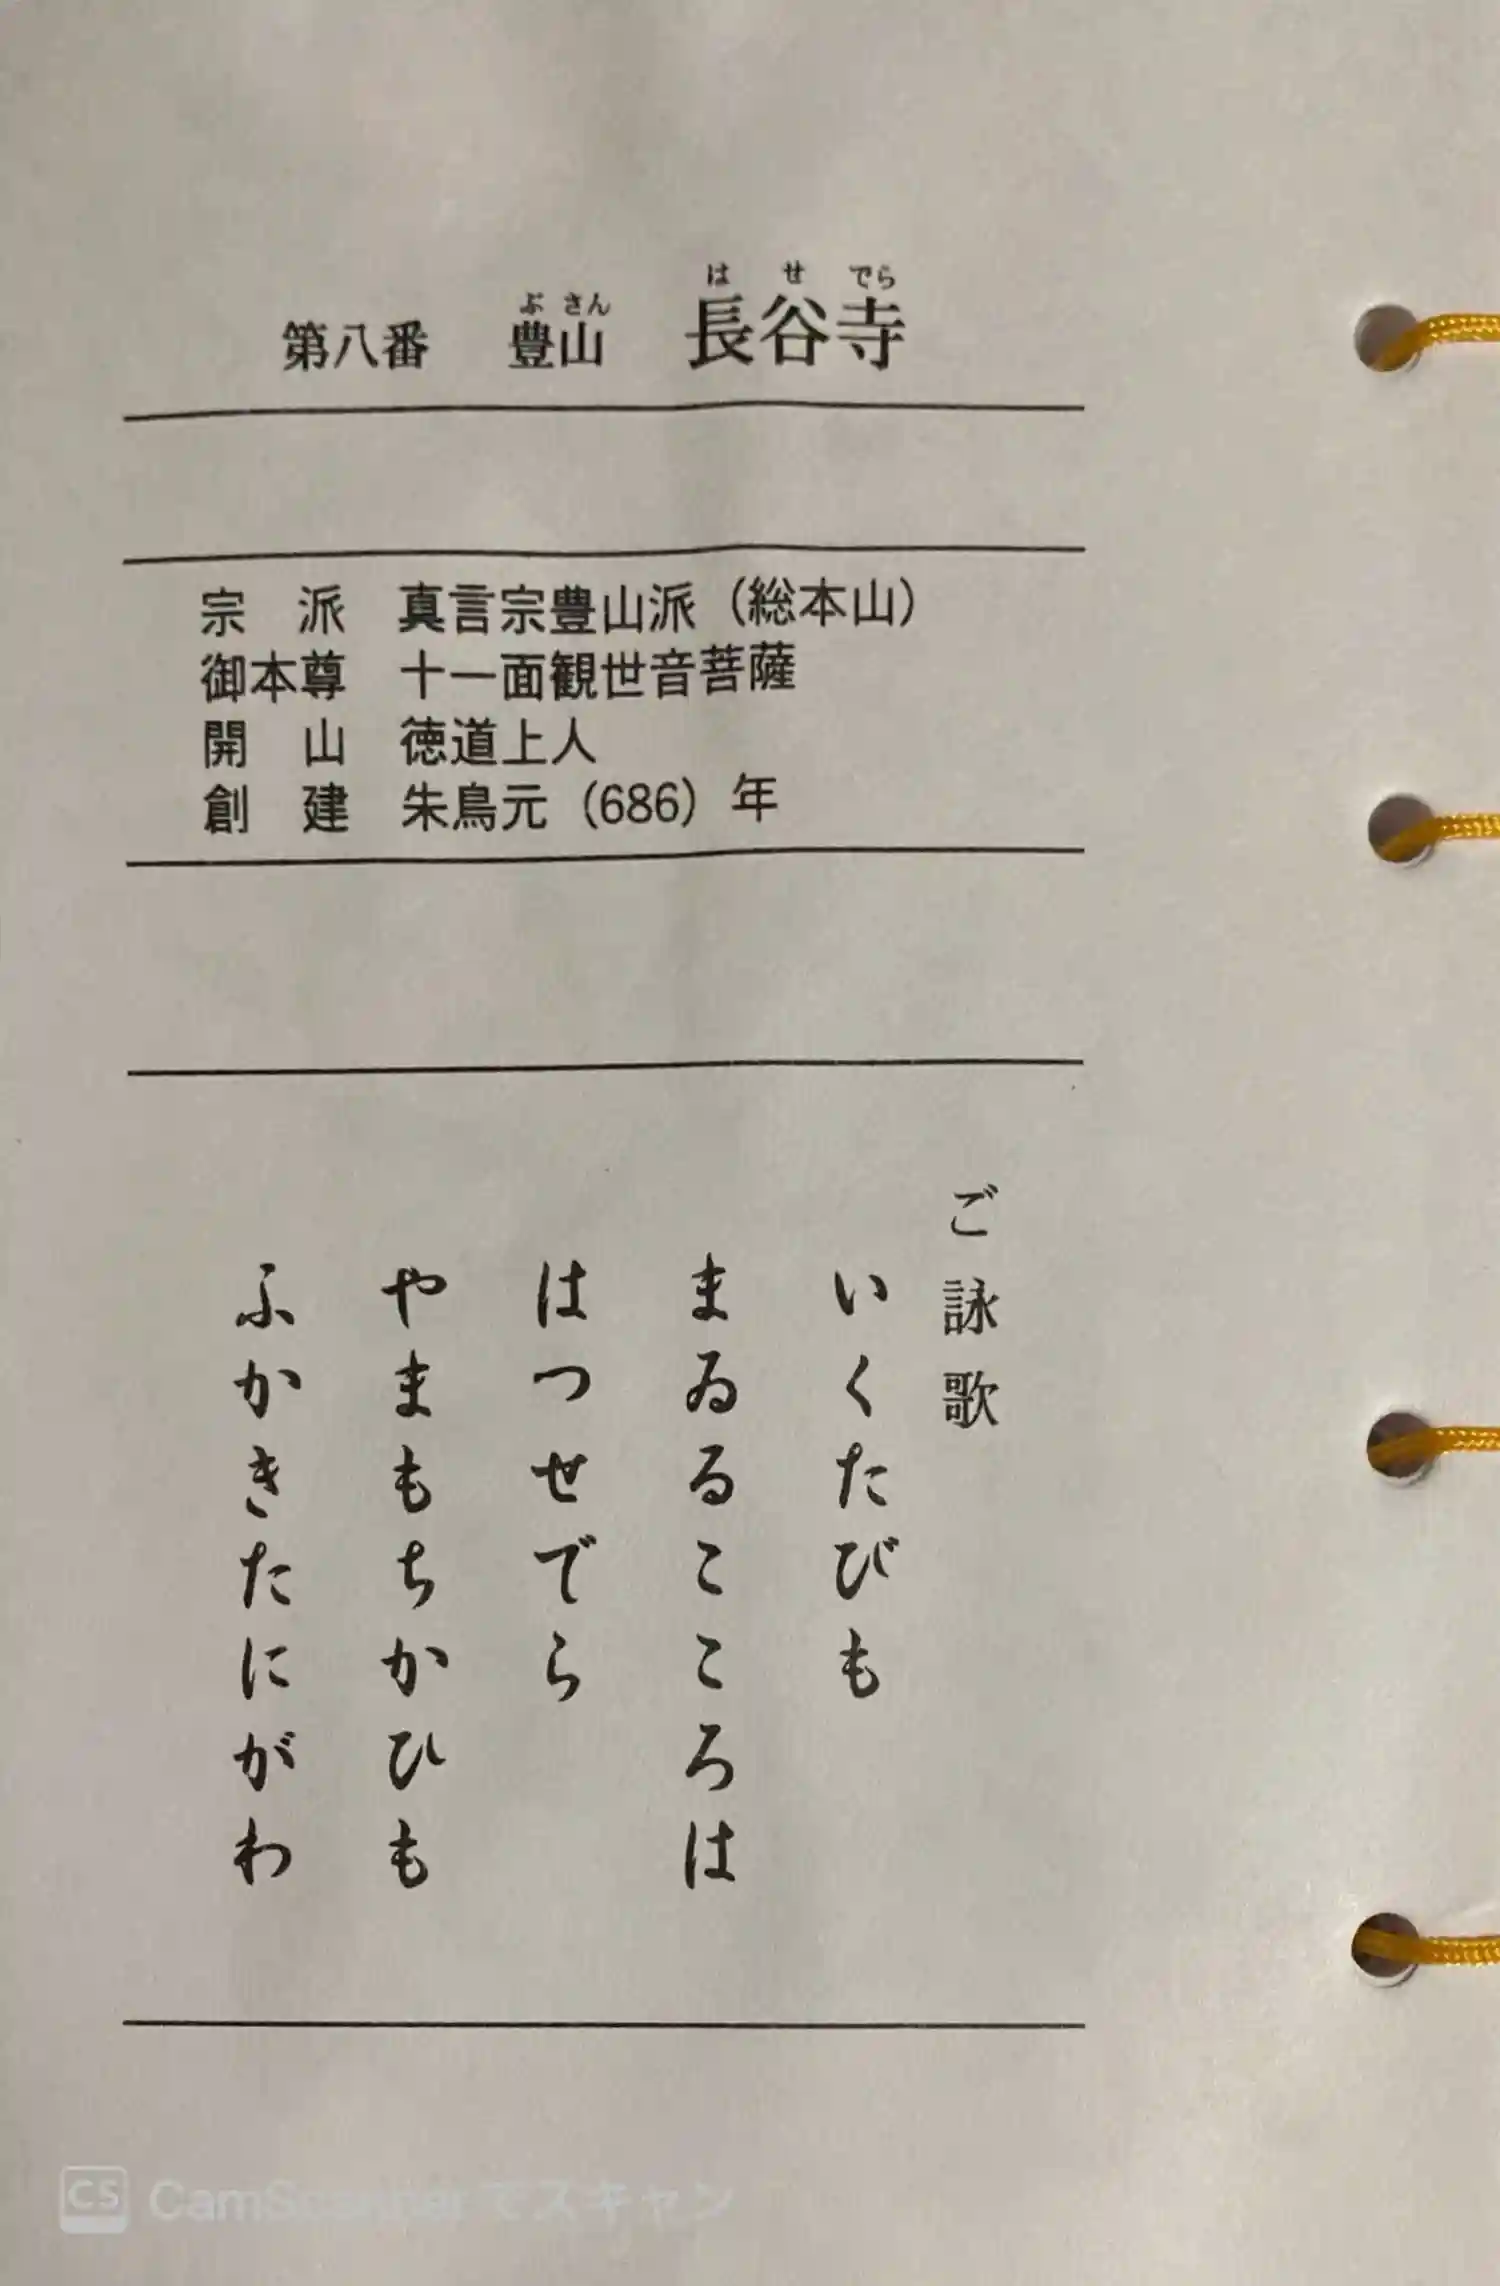 第八番 豊山 長谷寺
ぶさん はせでら
宗派 真言宗豊山派（総本山）
御本尊 十一面観世音菩薩
開山 徳道上人
創建 朱鳥元（686）年
ご詠歌
いくたびも
まゐるこころは
はつせでら
やまもちかひも
ふかきたにがわ
CS CamScannerでスキャン